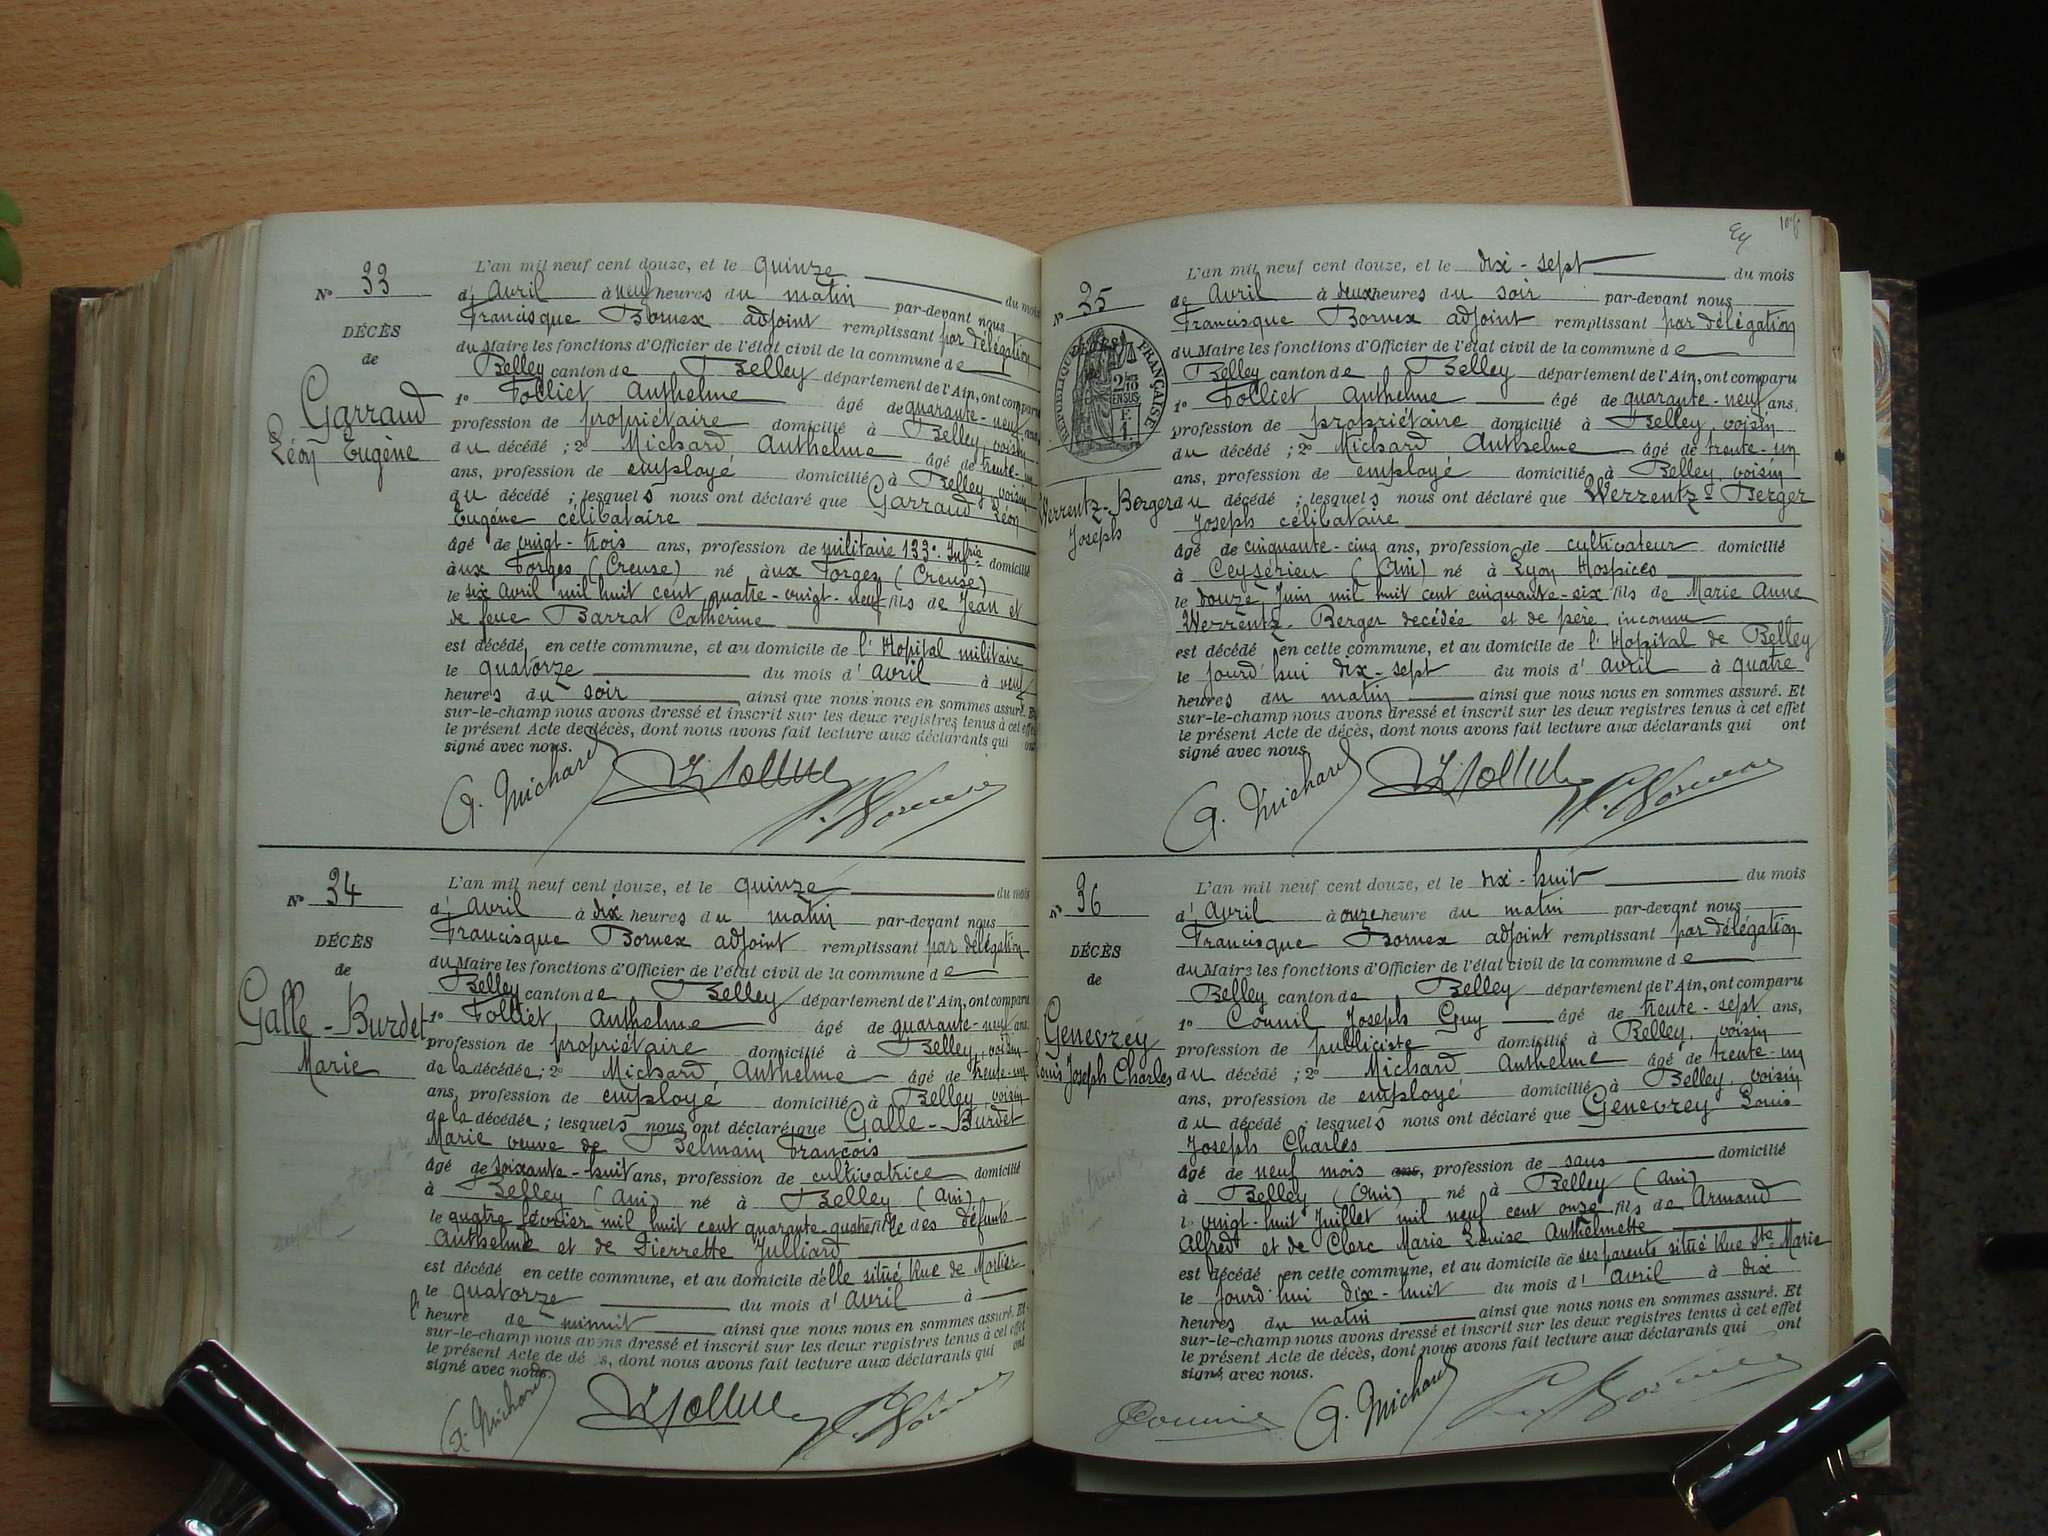 L'an mil neuf cent douze, et le quinze du mois
N° 33
d'avril à neuf heures du matin par-devant nous
Francisque Bornex adjoint remplissant par délégation
DÉCÈS
du Maire les fonctions d'Officier de l'état civil de la commune de
de
Belley canton de Belley département de l'Ain, ont comparu
Garraud
Léon Eugène
1° Folliet Anthelme âgé de quarante-neuf ans,
profession de propriétaire domicilié à Belley, voisin
du décédé ; 2° Michard Anthelme âgé de trente-un
ans, profession de employé domicilié à Belley, voisin
du décédé ; lesquels nous ont déclaré que Garraud Léon
Eugène célibataire
âgé de vingt-trois ans, profession de militaire 133e Infrie domicilié
aux Forges (Creuse) né aux Forges (Creuse)
le six avril mil huit cent quatre-vingt-neuf fils de Jean et
de feue Barrat Catherine
est décédé en cette commune, et au domicile de l'Hopital militaire
le quatorze du mois d'avril à neuf
heures du soir ainsi que nous nous en sommes assuré. Et
sur-le-champ nous avons dressé et inscrit sur les deux registres tenus à cet effet
le présent Acte de décès, dont nous avons fait lecture aux déclarants qui ont
signé avec nous.
A. Michard
N° 34
L'an mil neuf cent douze, et le quinze du mois
d'avril à dix heures du matin par-devant nous
DÉCÈS
Francisque Bornex adjoint remplissant par délégation
de
du Maire les fonctions d'Officier de l'état civil de la commune de
Belley canton de Belley département de l'Ain, ont comparu
Galle-Burdet
Marie
1° Folliet, Anthelme âgé de quarante-neuf ans,
profession de propriétaire domicilié à Belley, voisin
de la décédée ; 2° Michard, Anthelme âgé de trente-un
ans, profession de employé domicilié à Belley, voisin
de la décédée ; lesquels nous ont déclaré que Galle-Burdet
Marie veuve de Belmain François
âgé de soixante-huit ans, profession de cultivatrice domicilié
à Belley (Ain) né à Belley (Ain)
le quatre février mil huit cent quarante-quatre fille des défunts
Anthelme et de Pierrette Julliard
est décédé en cette commune, et au domicile d'elle situé Rue de
le quatorze du mois d'avril à
l'heure de minuit ainsi que nous nous en sommes assuré. Et
sur-le-champ nous avons dressé et inscrit sur les deux registres tenus à cet effet
le présent Acte de décès, dont nous avons fait lecture aux déclarants qui ont
signé avec nous.
A. Michard
L'an mil neuf cent douze, et le dix-sept du mois
N° 35
de avril à deux heures du soir par-devant nous
Francisque Bornex adjoint remplissant par délégation
RÉPUBLIQUE FRANÇAISE
2/10 EN SUS
du Maire les fonctions d'Officier de l'état civil de la commune de
Belley canton de Belley département de l'Ain, ont comparu
1° Folliet Anthelme âgé de quarante-neuf ans,
profession de propriétaire domicilié à Belley, voisin
du décédé ; 2° Michard Anthelme âgé de trente-un
ans, profession de employé domicilié à Belley, voisin
Werrentz-Berger
Joseph
du décédé ; lesquels nous ont déclaré que Werrentz-Berger
Joseph célibataire
âgé de cinquante-cinq ans, profession de cultivateur domicilié
à Ceyserieu (Ain) né à Lyon Hospices
le douze Juin mil huit cent cinquante-six fils de Marie Anne
Werrentz-Berger decédée et de père inconnu
est décédé en cette commune, et au domicile de l'Hopital de Belley
le jourd'hui dix-sept du mois d'avril à quatre
heures du matin ainsi que nous nous en sommes assuré. Et
sur-le-champ nous avons dressé et inscrit sur les deux registres tenus à cet effet
le présent Acte de décès, dont nous avons fait lecture aux déclarants qui ont
signé avec nous
A. Michard
N° 36
L'an mil neuf cent douze, et le dix-huit du mois
d'avril à onze heure du matin par-devant nous
Francisque Bornex adjoint remplissant par délégation
DÉCÈS
de
du Maire les fonctions d'Officier de l'état civil de la commune de
Belley canton de Belley département de l'Ain, ont comparu
Genevrey
Louis Joseph Charles
1° Counil Joseph Guy âgé de trente-sept ans,
profession de publiciste domicilié à Belley, voisin
du décédé ; 2° Michard Anthelme âgé de trente-un
ans, profession de employé domicilié à Belley, voisin
du décédé lesquels nous ont déclaré que Genevrey Louis
Joseph Charles
âgé de neuf mois ans, profession de sans domicilié
à Belley (Ain) né à Belley (Ain)
le vingt-huit Juillet mil neuf cent onze fils de Armand
Alfred et de Clerc Marie Louise Anthelmette
est décédé en cette commune, et au domicile de ses parents situé Rue Ste Marie
le jourd'hui dix-huit du mois d'avril à dix
heures du matin ainsi que nous nous en sommes assuré. Et
sur-le-champ nous avons dressé et inscrit sur les deux registres tenus à cet effet
le présent Acte de décès, dont nous avons fait lecture aux déclarants qui ont
signé avec nous.
A. Michard